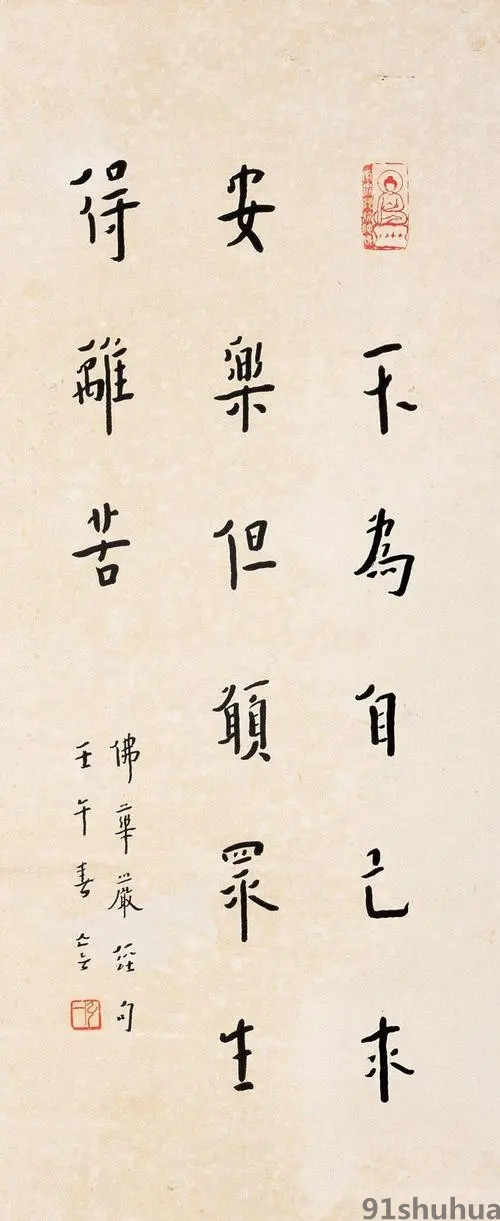 不為自己求
安樂但願眾生
得離苦
佛華嚴經句
壬午春亡言
91shuhua